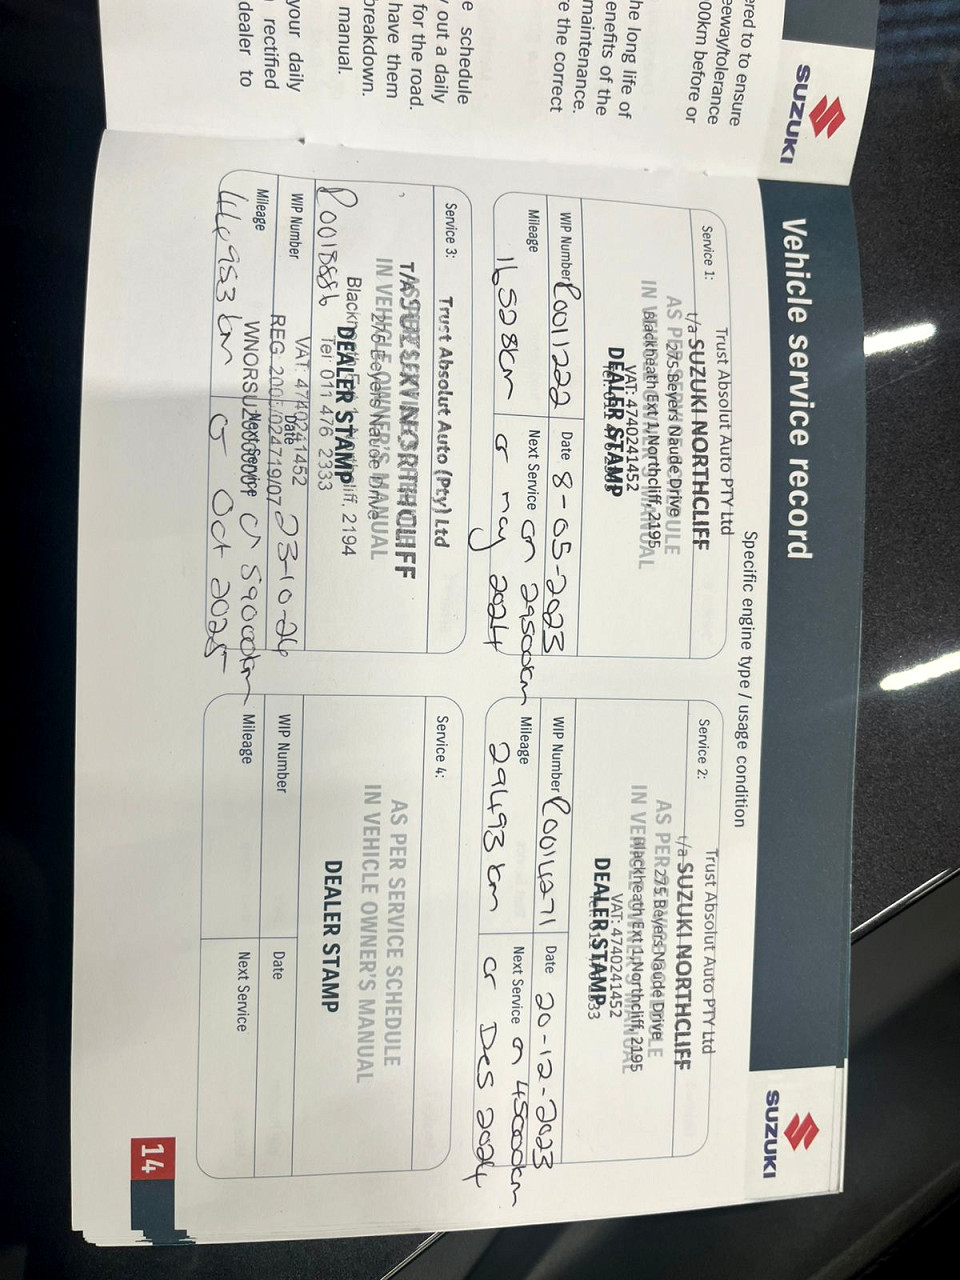 ered to to ensure
eeway/tolerance
00km before or
he long life of
enefits of the
maintenance.
re the correct
e schedule
out a daily
for the road.
have them
breakdown.
manual.
your daily
rectified
dealer to
SUZUKI
Vehicle service record
SUZUKI
Specific engine type / usage condition
Service 1:
Trust Absolut Auto PTY Ltd
t/a SUZUKI NORTHCLIFF
AS PER SERVICE SCHEDULE
275 Beyers Naude Drive
IN VEHICLE OWNER'S MANUAL
Blackheath Ext 1, Northcliff, 2195
VAT: 4740241452
DEALER STAMP
WIP Number R0011222
Date 8-05-2023
Mileage 16528km
Next Service @ 29500km
or may 2024
Service 2:
Trust Absolut Auto PTY Ltd
t/a SUZUKI NORTHCLIFF
AS PER SERVICE SCHEDULE
275 Beyers Naude Drive
IN VEHICLE OWNER'S MANUAL
Blackheath Ext 1, Northcliff, 2195
VAT: 4740241452
DEALER STAMP
WIP Number R0014271
Date 20-12-2023
Mileage 29493 km
Next Service @ 45000km
or Des 2024
Service 3:
Trust Absolut Auto (Pty) Ltd
T/A SUZUKI NORTHCLIFF
AS PER SERVICE SCHEDULE
IN VEHICLE OWNER'S MANUAL
275 Beyers Naude Drive
Northcliff. 2194
DEALER STAMP
Tel 011 476 2333
VAT: 4740241452
WIP Number R0018886
Date 23-10-24
Mileage 44953 km
Next Service @ 59000km
or Oct 2025
Service 4:
AS PER SERVICE SCHEDULE
IN VEHICLE OWNER'S MANUAL
DEALER STAMP
WIP Number
Date
Mileage
Next Service
14